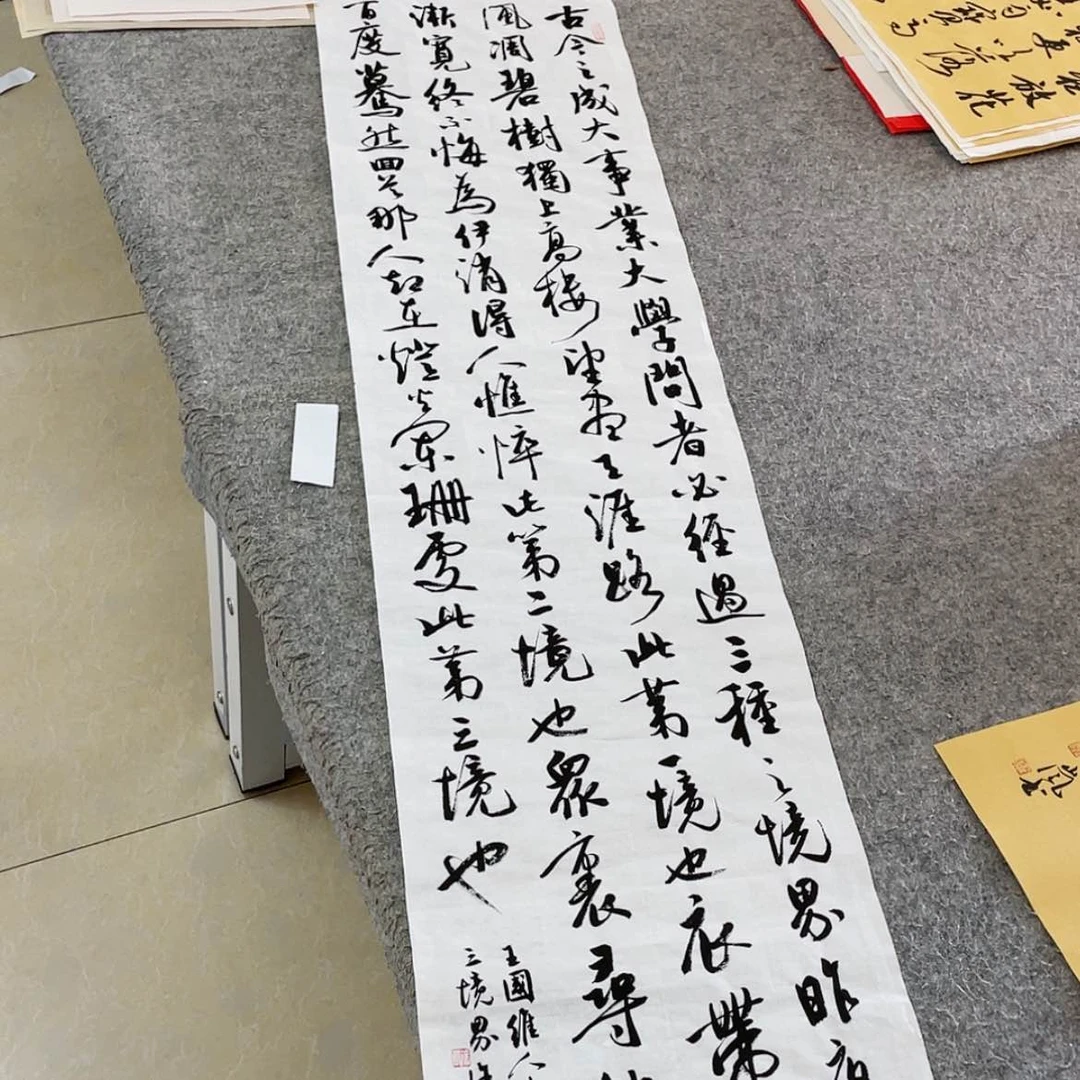 古今之成大事業大學問者必經過三種之境界昨夜
風凋碧樹獨上高樓望盡天涯路此第一境也衣帶
漸寬終不悔為伊消得人憔悴此第二境也眾裏尋他
百度驀然回首那人却在燈火闌珊處此第三境也
王國維人
三境界